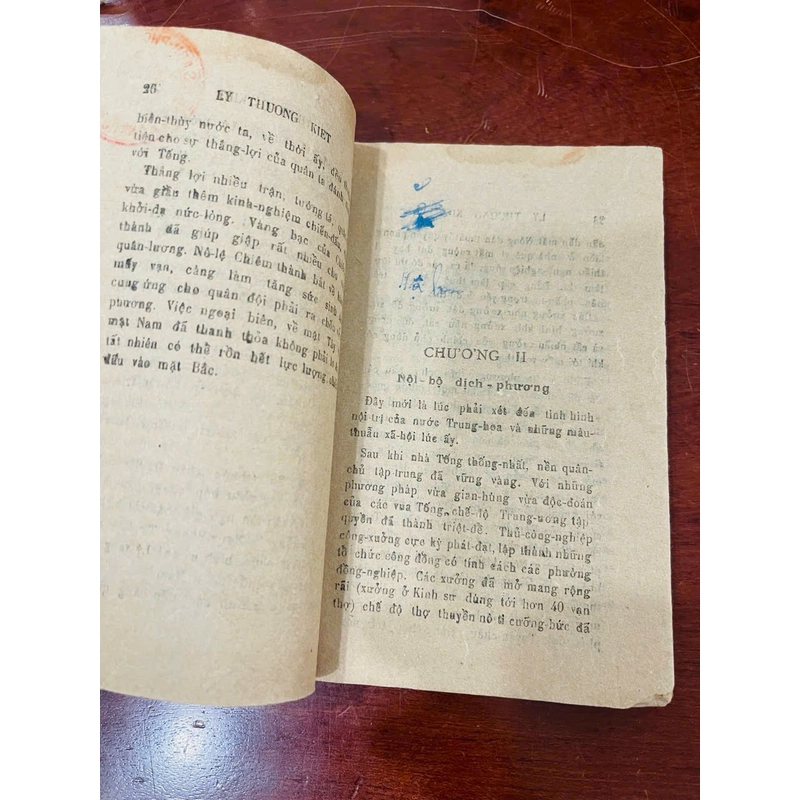 26 LÝ THƯỜNG KIỆT
biên-thùy nước ta, về thời ấy, đều
tiện cho sự thắng-lợi của quân ta đánh
với Tống.
Thắng lợi nhiều trận, tướng tá,
vừa giầu thêm kinh-nghiệm chiến-đấu,
khởi-dạ nức-lòng. Vàng bạc của
thành đã giúp giệp rất nhiều cho
quân-lương. Nô-lệ Chiêm thành bắt về
mấy vạn, càng làm tăng sức sinh
cung ứng cho quân đội phải ra
phương. Việc ngoại biên, về mặt Tây
mặt Nam đã thanh thỏa không phải
tất nhiên có thể rồn hết lực lượng
đấu vào mặt Bắc.
CHƯƠNG II
Nội-bộ địch-phương
Đây mới là lúc phải xét đến tình hình
nội-trị của nước Trung-hoa và những mâu-
thuẫn xã-hội lúc ấy.
Sau khi nhà Tống thống-nhất, nền quân-
chủ tập-trung đã vững vàng. Với những
phương pháp vừa gian-hùng vừa độc-đoán
của các vua Tống, chế-độ Trung-ương tập
quyền đã thành triệt-đề. Thủ-công-nghiệp
công-xưởng cực kỳ phát-đạt, lập thành những
tổ chức công đồng có tính sách các phường
đồng-nghiệp. Các xưởng đã mở mang rộng
rãi (xưởng ở Kinh sư dùng tới hơn 40 vạn
thợ) chế độ thợ thuyền nô-tì cưỡng-bức đã